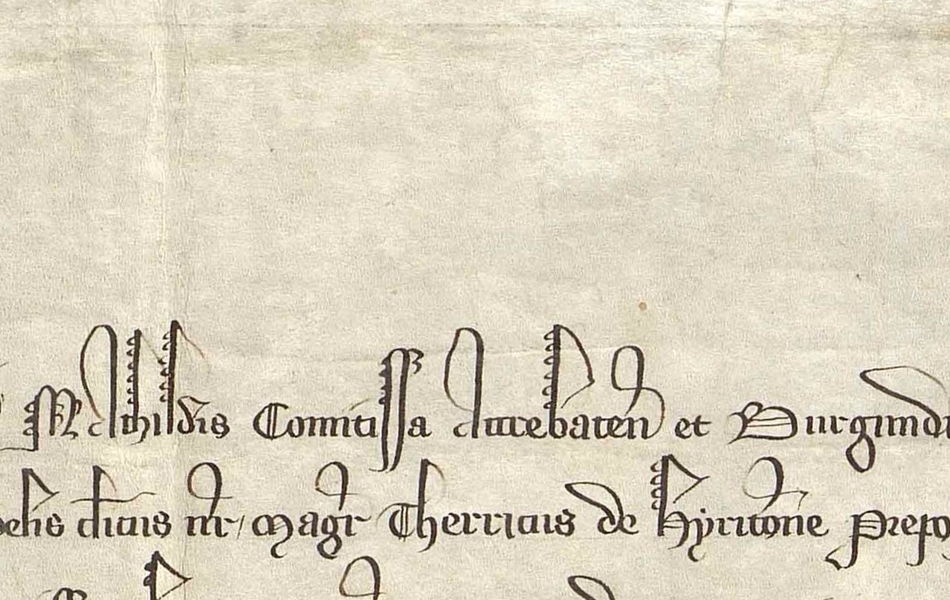 Mathildis Comitissa Attrebaten et Burgundi
elis clicus nr magr Therricus de Hyricone prepo